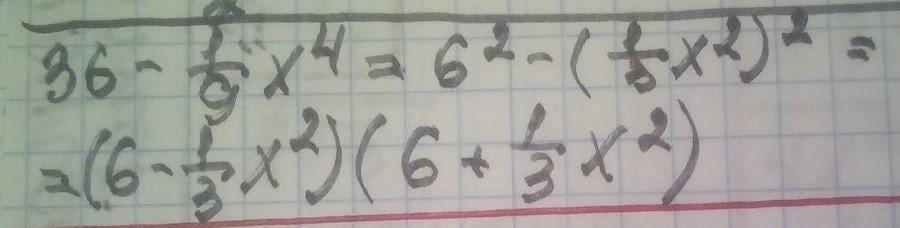 36 - 1/9 x⁴ = 6² - (1/3 x²)² =
= (6 - 1/3 x²)(6 + 1/3 x²)